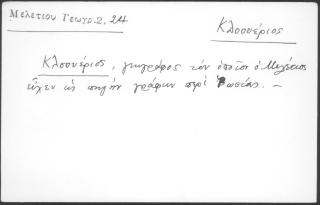 Μελετίου Γεωγρ. 2, 24
Κλουέριος
Κλουέριος, γεωγράφος τὸν ὁποῖον ὁ Μελέτιος
εἶχεν ὡς πηγὴν γράφων περὶ Ῥωσίας. —